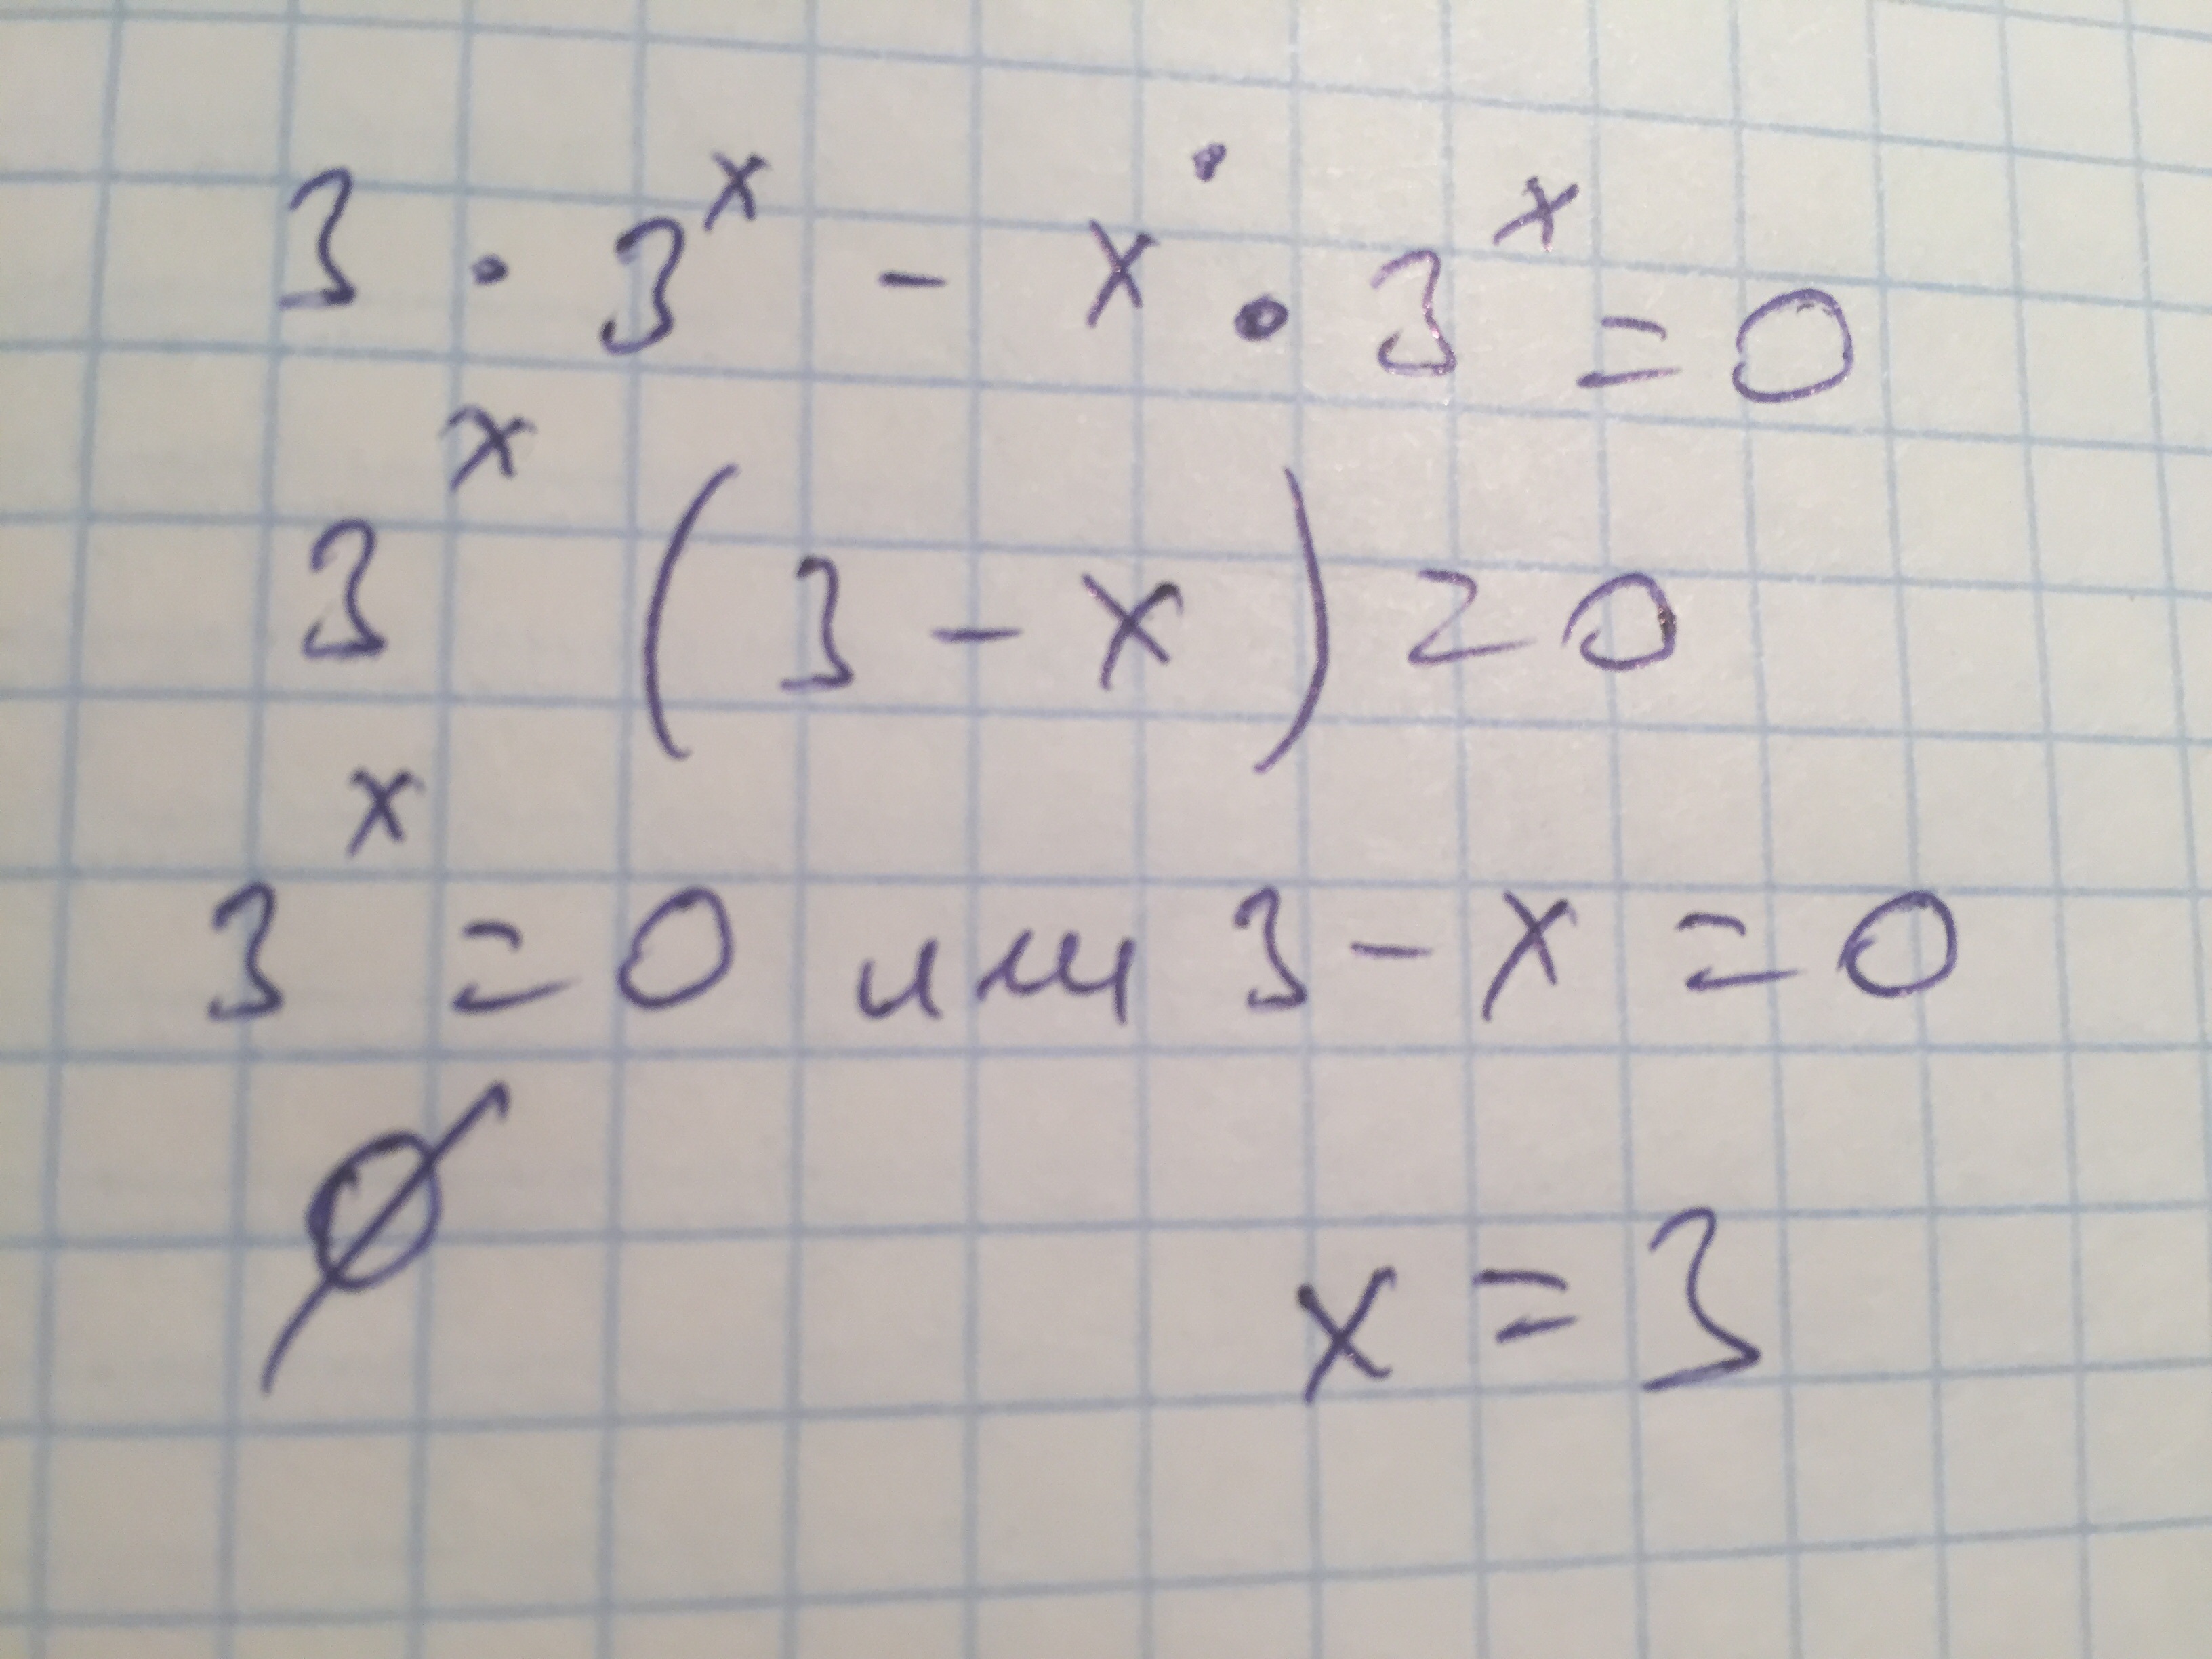 3 · 3ˣ - x · 3ˣ = 0
3ˣ (3 - x) = 0
3ˣ = 0 или 3 - x = 0
∅ x = 3